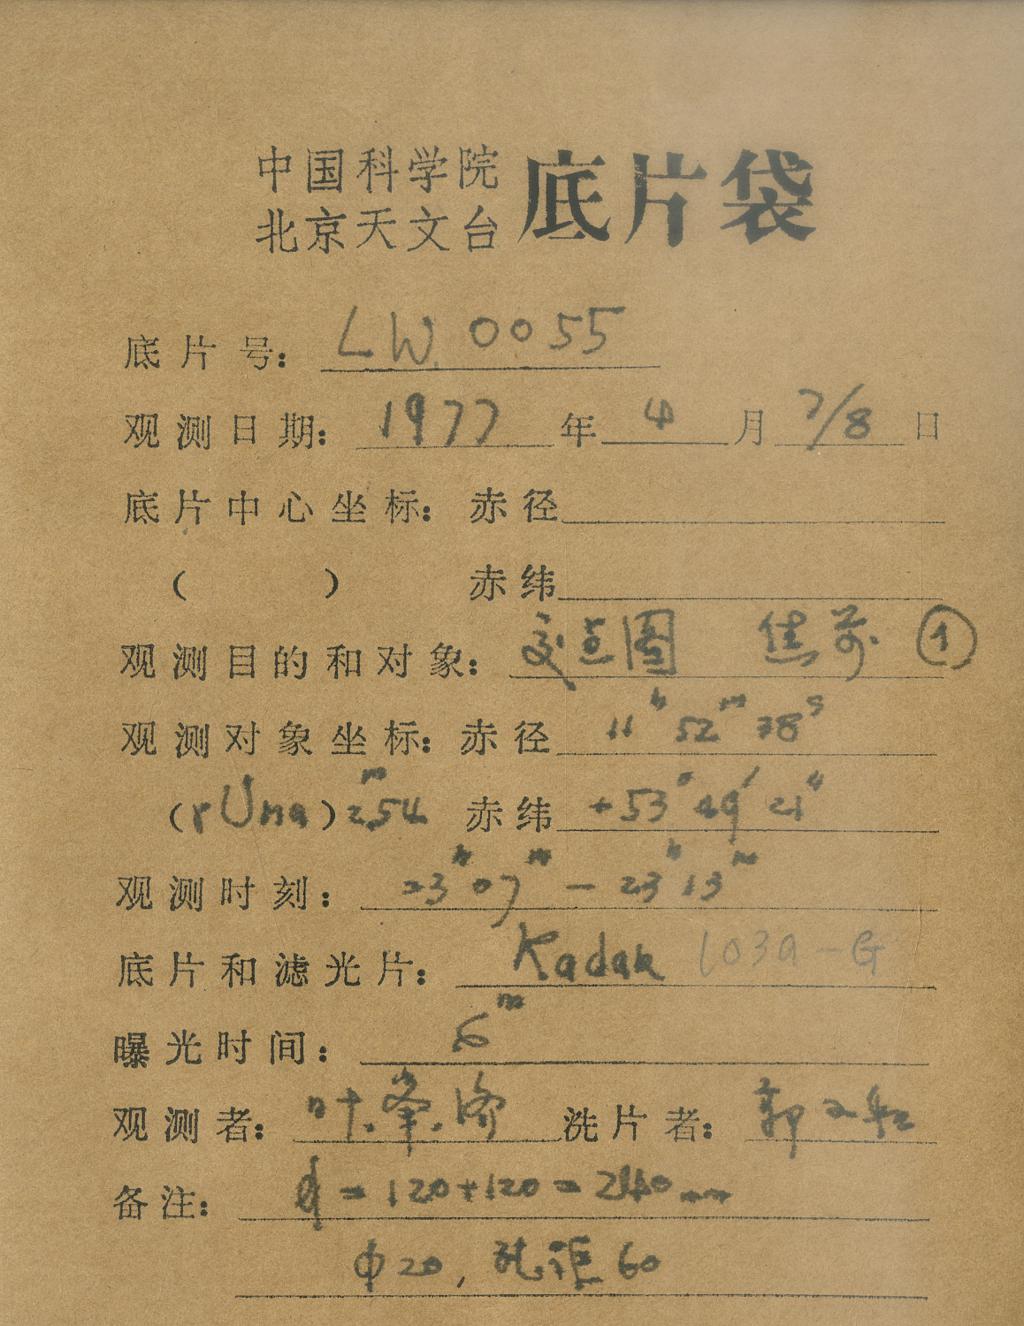 中国科学院
北京天文台
底片袋
底片号: LW 0055
观测日期: 1977年 4月 7/8日
底片中心坐标: 赤径
( ) 赤纬
观测目的和对象: 交点图 焦前 ①
观测对象坐标: 赤径 11h 52m 38s
(γ Uma) 2m.54 赤纬 +53° 49′ 21″
观测时刻: 23h 07m — 23h 13m
底片和滤光片: Kadak 103a-G
曝光时间: 6m
观测者: 叶. 济 洗片者: 郭
备注: d = 120+120 = 240 mm
Φ20, 孔距 60